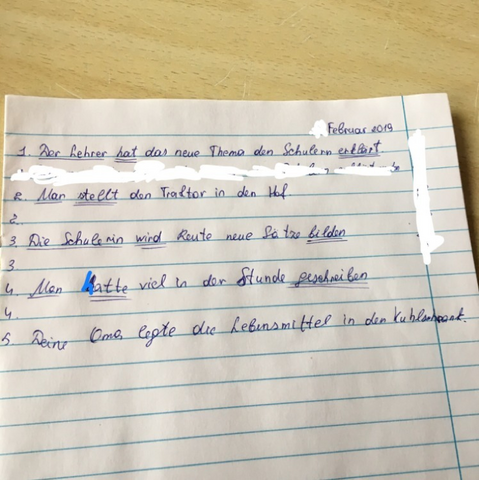 Februar 2019
1. Der Lehrer hat das neue Thema den Schulern erklart
2. Man stellt den Traktor in den Hof
2.
3. Die Schulerin wird heute neue Sätze bilden
3
4. Man hatte viel in der Stunde geschreiben
4.
5. Deine Oma legte die Lebensmittel in den Kuhlschrank.